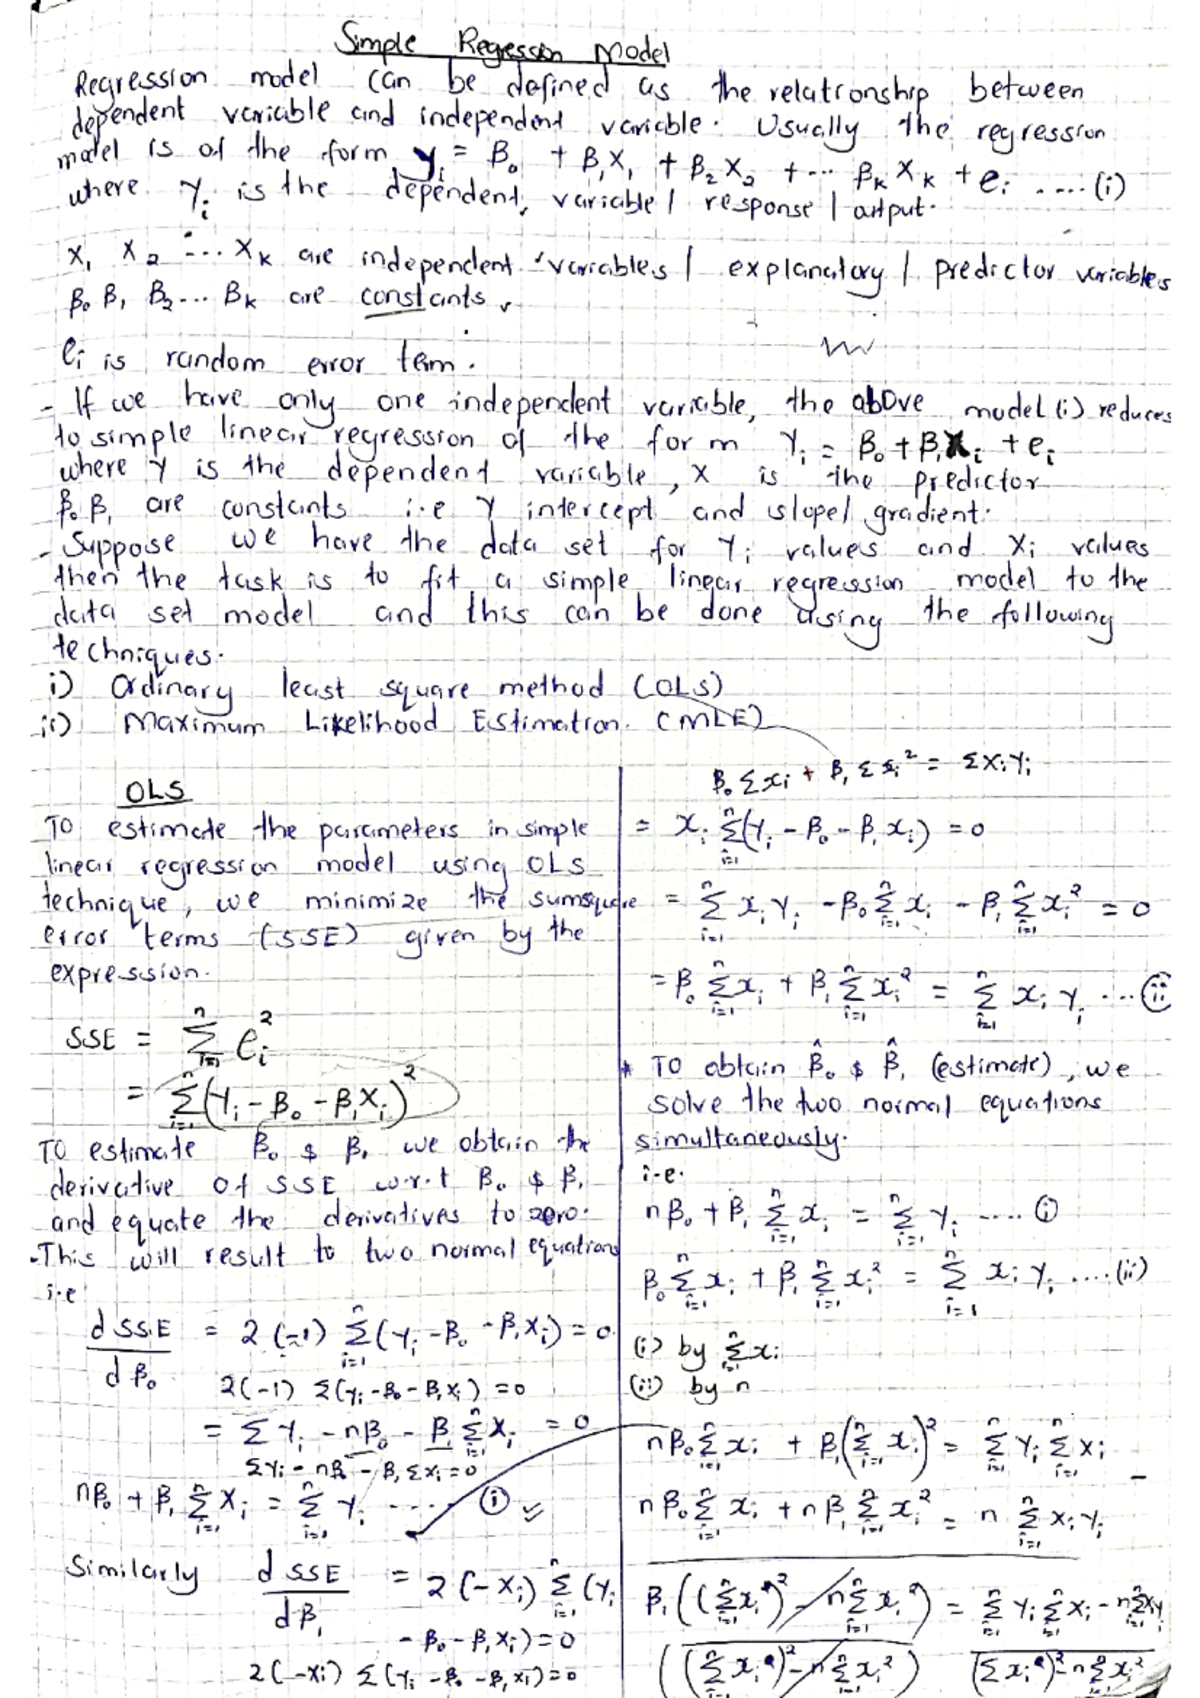 Simple Regression Model
Regression model can be defined as the relationship between
dependent variable and independent variable. Usually the regression
model is of the form yᵢ = β₀ + β₁X₁ + β₂X₂ + ... βₖXₖ + eᵢ .....(i)
where Yᵢ is the dependent variable / response / output.
X₁ X₂ ... Xₖ are independent variables / explanatory / predictor variables
β₀ β₁ β₂... βₖ are constants.
eᵢ is random error term.
- If we have only one independent variable, the above model (i) reduces
to simple linear regression of the form Yᵢ = β₀ + β₁Xᵢ + eᵢ
where Y is the dependent variable, X is the predictor
β₀ β₁ are constants i.e Y intercept and slope/ gradient.
- Suppose we have the data set for Yᵢ values and Xᵢ values
then the task is to fit a simple linear regression model to the
data set model and this can be done using the following
techniques.
i) Ordinary least square method (OLS)
ii) Maximum Likelihood Estimation. (MLE)
OLS
To estimate the parameters in simple
linear regression model using OLS
technique, we minimize the sumsquare
error terms (SSE) given by the
expression.
SSE = Σⁿᵢ₌₁ eᵢ²
= Σⁿᵢ₌₁(Yᵢ - β₀ - β₁Xᵢ)²
To estimate β₀ & β₁ we obtain the
derivative of SSE w.r.t β₀ & β₁
and equate the derivatives to zero.
-This will result to two normal equations
i.e
dSSE/dβ₀ = 2(-1) Σⁿᵢ₌₁(Yᵢ - β₀ - β₁Xᵢ) = 0
2(-1) Σ(Yᵢ - β₀ - β₁Xᵢ) = 0
= ΣYᵢ - nβ₀ - β₁ Σⁿᵢ₌₁ Xᵢ = 0
ΣYᵢ - nβ₀ - β₁ΣXᵢ = 0
nβ₀ + β₁ Σⁿᵢ₌₁ Xᵢ = Σⁿᵢ₌₁ Yᵢ .... (i)
Similarly dSSE/dβ₁ = 2(-Xᵢ) Σⁿᵢ₌₁ (Yᵢ
- β₀ - β₁Xᵢ) = 0
2(-Xᵢ) Σ(Yᵢ - β₀ - β₁Xᵢ) = 0
β₀ Σxᵢ + β₁ Σxᵢ² = ΣXᵢYᵢ
= xᵢ Σⁿᵢ₌₁(Yᵢ - β₀ - β₁xᵢ) = 0
= Σⁿᵢ₌₁ xᵢYᵢ - β₀ Σⁿᵢ₌₁ xᵢ - β₁ Σⁿᵢ₌₁ xᵢ² = 0
= β₀ Σⁿᵢ₌₁ xᵢ + β₁ Σⁿᵢ₌₁ xᵢ² = Σⁿᵢ₌₁ xᵢYᵢ ...(ii)
* To obtain β̂₀ & β̂₁ (estimate), we
solve the two normal equations
simultaneously.
i.e.
nβ₀ + β₁ Σⁿᵢ₌₁ xᵢ = Σⁿᵢ₌₁ Yᵢ .... (i)
β₀ Σⁿᵢ₌₁ xᵢ + β₁ Σⁿᵢ₌₁ xᵢ² = Σⁿᵢ₌₁ xᵢYᵢ ....(ii)
(i) by Σⁿᵢ₌₁ xᵢ
(ii) by n
nβ₀ Σⁿᵢ₌₁ xᵢ + β₁(Σⁿᵢ₌₁ xᵢ)² = Σⁿᵢ₌₁ Yᵢ Σⁿᵢ₌₁ Xᵢ
-
nβ₀ Σⁿᵢ₌₁ xᵢ + nβ₁ Σⁿᵢ₌₁ xᵢ² = n Σⁿᵢ₌₁ XᵢYᵢ
β₁((Σⁿᵢ₌₁ xᵢ)² - nΣⁿᵢ₌₁ xᵢ²) = Σⁿᵢ₌₁ Yᵢ Σⁿᵢ₌₁ Xᵢ - nΣⁿᵢ₌₁ XᵢYᵢ
((Σⁿᵢ₌₁ xᵢ)² - nΣⁿᵢ₌₁ xᵢ²) (Σxᵢ)² - nΣxᵢ²